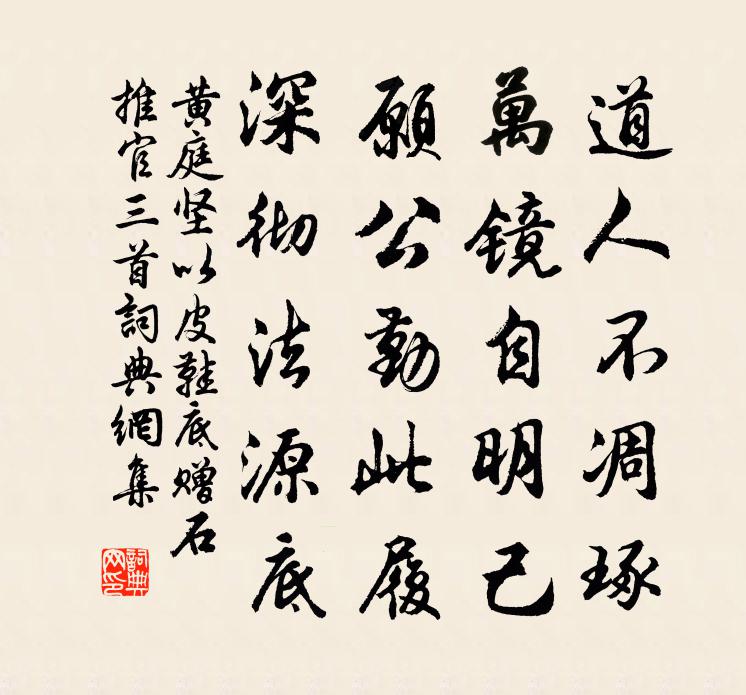 道人不凋琢
萬镜自明己
願公勤此履
深彻法源底
黄庭坚以皮鞋底赠石
推官三首詞典網集
詞典
网印